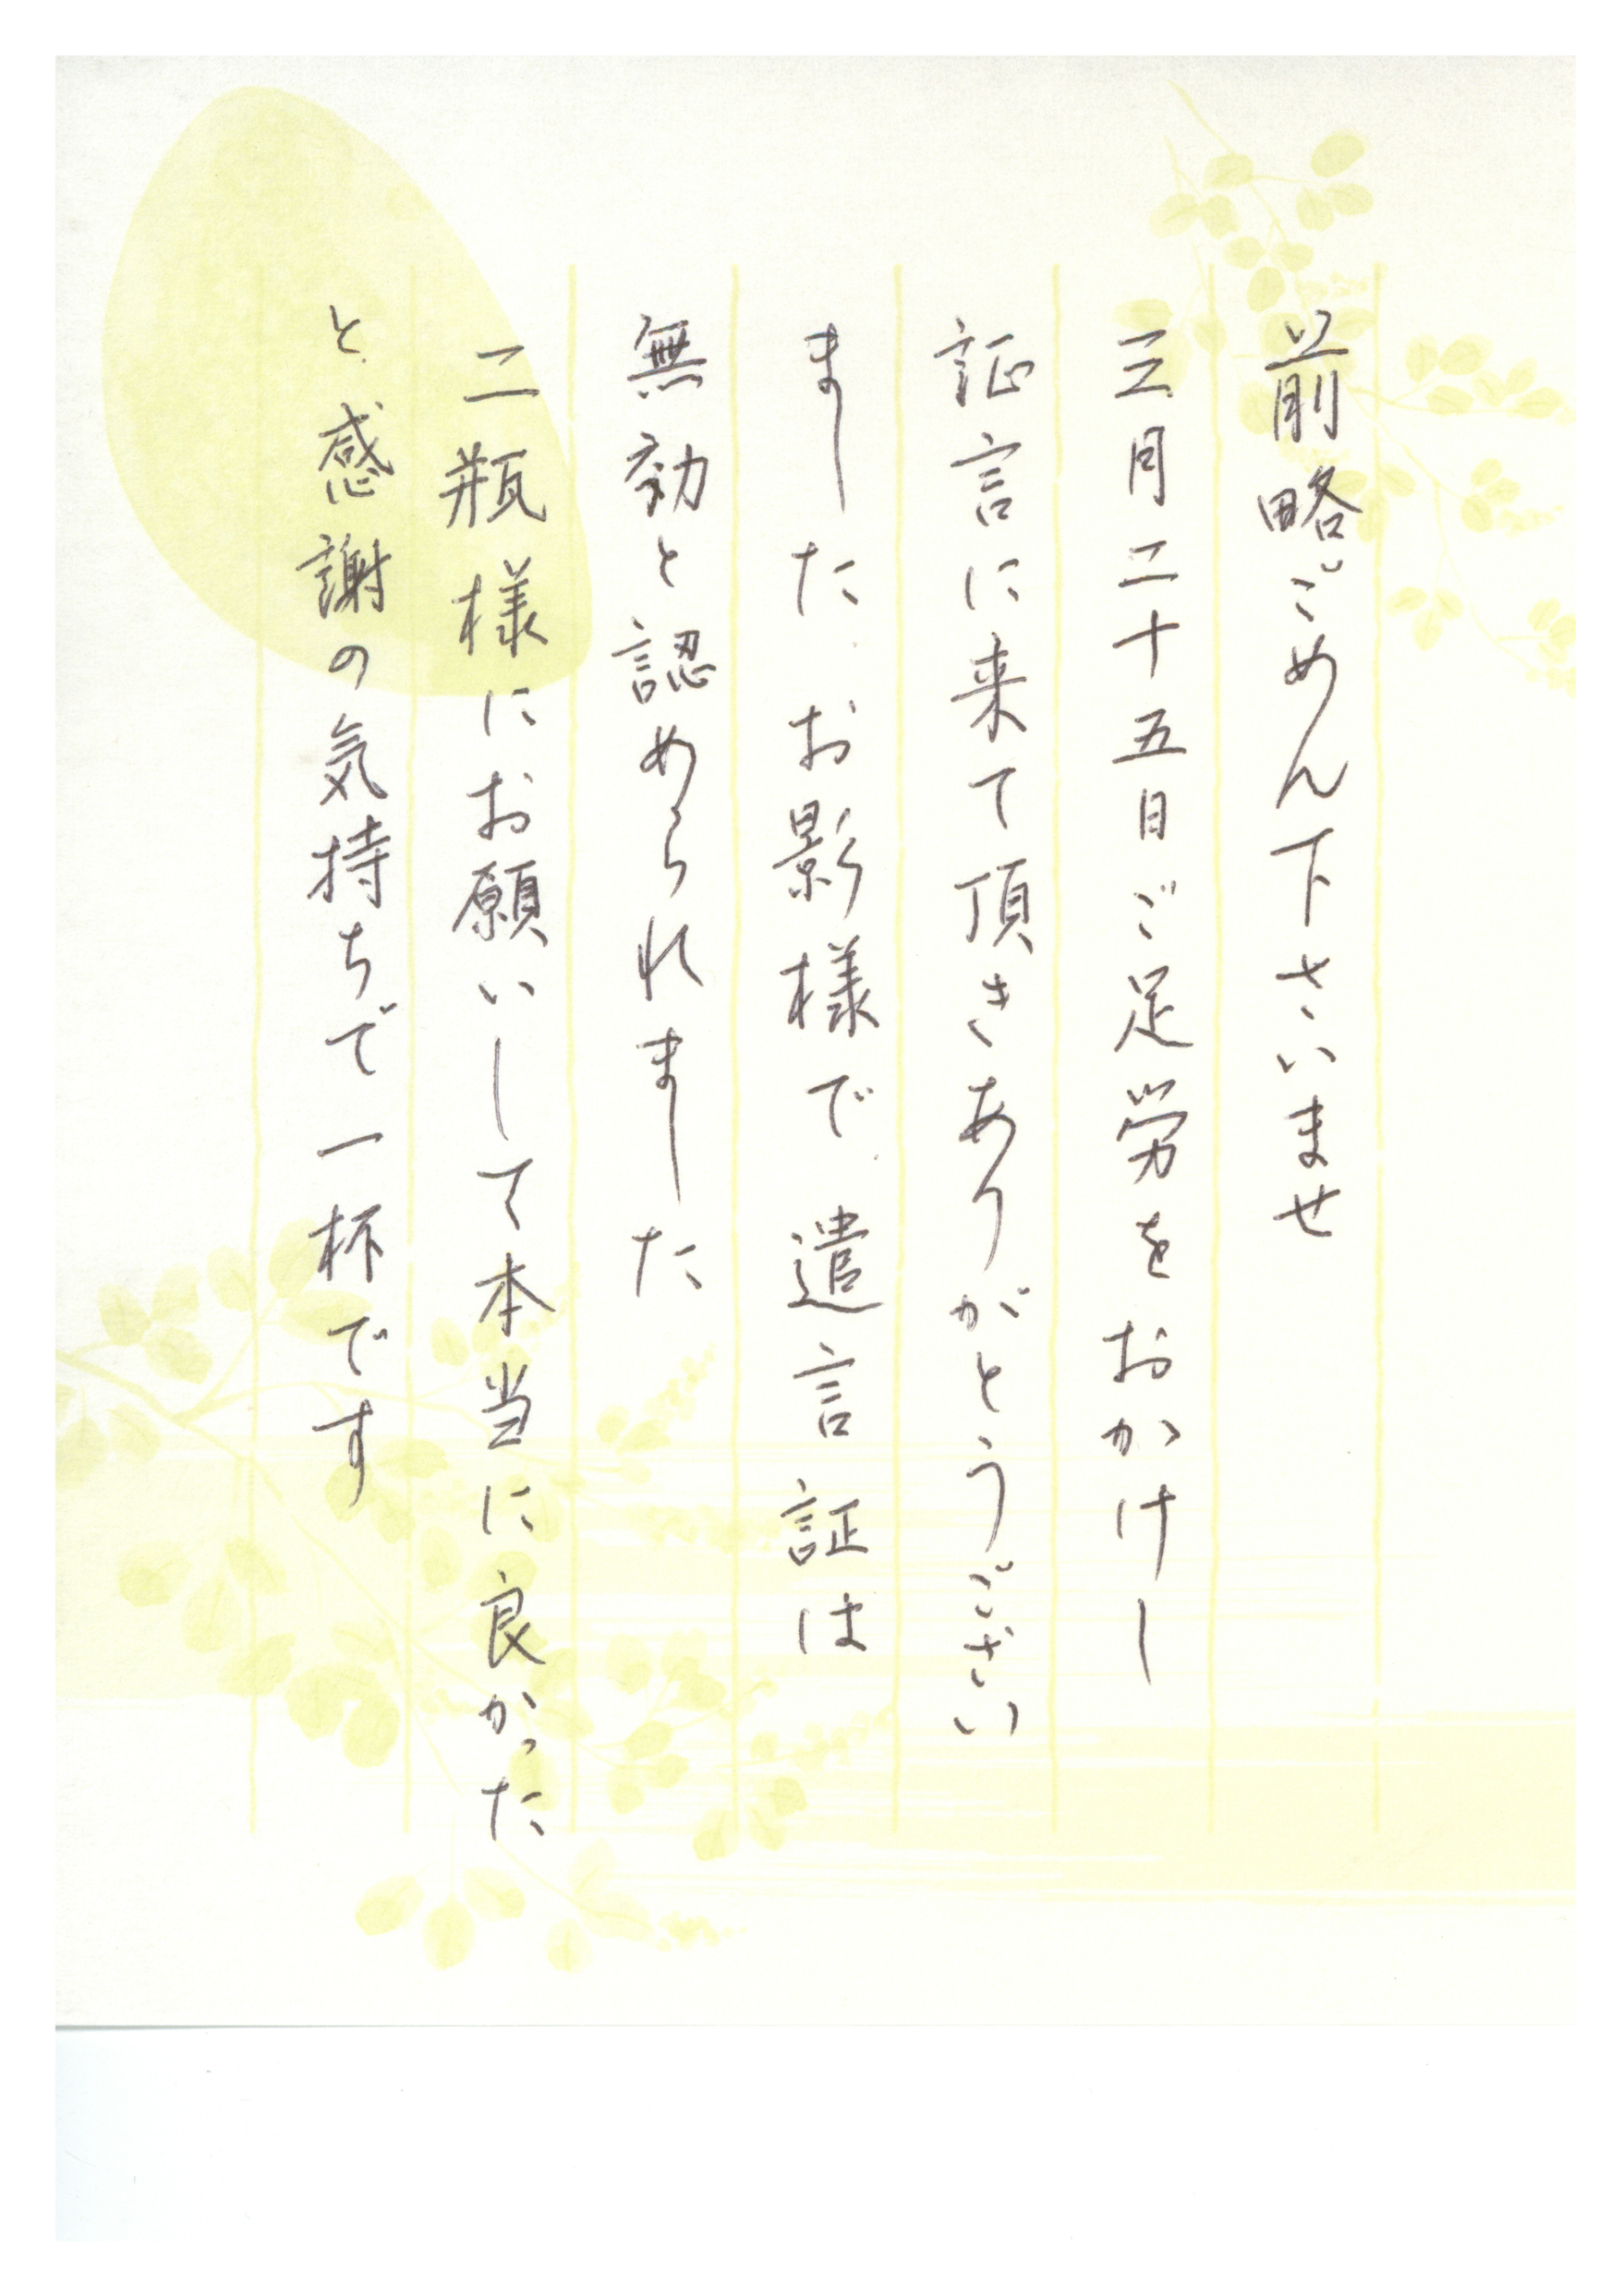 前略ごめん下さいませ
三月二十五日ご足労をおかけし
証言に来て頂きありがとうござい
ました お影様で 遺言証は
無効と認められました
二瓶様にお願いして本当に良かった
と感謝の気持ちで一杯です